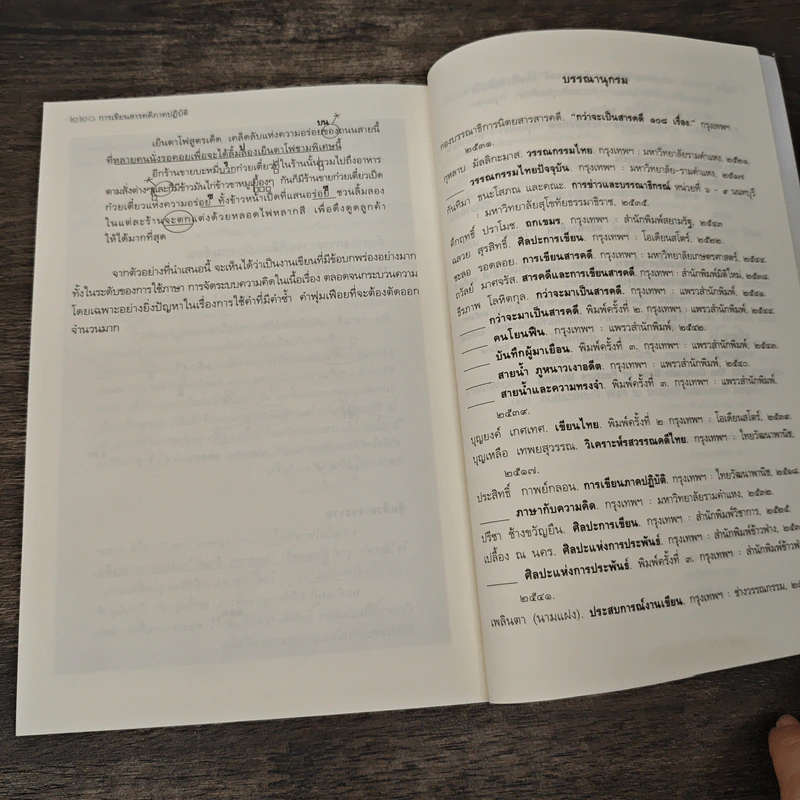 ๒๒๐ การเขียนสารคดีภาคปฏิบัติ
บน
เย็นตาโฟสูตรเด็ด เคล็ดลับแห่งความอร่อยของถนนสายนี้
ที่หลายคนนั่งรอคอยเพื่อจะได้ลิ้มลองเย็นตาโฟชามพิเศษนี้
อีกร้านขายบะหมี่บวกก๋วยเตี๋ยวที่ในร้านนั้นรวมไปถึงอาหาร
ตามสั่งต่างๆและมีข้าวมันไก่ข้าวขาหมูเยื้องๆ กันก็มีร้านก๋วยเตี๋ยวเป็ด
ก๋วยเตี๋ยวแห่งความอร่อย ทั้งข้าวหน้าเป็ดที่แสนอร่อย ชวนลิ้มลอง
ในแต่ละร้านจะตกแต่งด้วยหลอดไฟหลากสี เพื่อดึงดูดลูกค้า
ให้ได้มากที่สุด
จากตัวอย่างที่นำเสนอนี้ จะเห็นได้ว่าเป็นงานเขียนที่มีข้อบกพร่องอย่างมาก
ทั้งในระดับของการใช้ภาษา การจัดระบบความคิดในเนื้อเรื่อง ตลอดจนกระบวนความ
โดยเฉพาะอย่างยิ่งปัญหาในเรื่องการใช้คำที่มีคำซ้ำ คำฟุ่มเฟือยที่จะต้องตัดออก
จำนวนมาก
บรรณานุกรม
กองบรรณาธิการนิตยสารสารคดี. "กว่าจะเป็นสารคดี ๑๐๘ เรื่อง." กรุงเทพฯ :
๒๕๓๑.
กุหลาบ มัลลิกะมาส. วรรณกรรมไทย. กรุงเทพฯ : มหาวิทยาลัยรามคำแหง, ๒๕๒๑.
วรรณกรรมไทยปัจจุบัน. กรุงเทพฯ : มหาวิทยาลัยรามคำแหง, ๒๕๑๗
กันทิมา ธนะโสภณ และคณะ. การข่าวและบรรณาธิกรณ์ หน่วยที่ ๖ - ๙ นนทบุรี
: มหาวิทยาลัยสุโขทัยธรรมาธิราช, ๒๕๓๕.
คึกฤทธิ์ ปราโมช. ถกเขมร. กรุงเทพฯ : สำนักพิมพ์สยามรัฐ, ๒๕๔๓
ฉลวย สุรสิทธิ์. ศิลปะการเขียน. กรุงเทพฯ : โอเดียนสโตร์, ๒๕๒๒.
ชะลอ รอดลอย. การเขียนสารคดี. กรุงเทพฯ : มหาวิทยาลัยเกษตรศาสตร์, ๒๕๔๔.
ถวัลย์ มาศจรัส. สารคดีและการเขียนสารคดี. กรุงเทพฯ : สำนักพิมพ์มิติใหม่, ๒๕๓๘.
ธีรภาพ โลหิตกุล. กว่าจะมาเป็นสารคดี. กรุงเทพฯ : แพรวสำนักพิมพ์, ๒๕๔๑.
กว่าจะมาเป็นสารคดี. พิมพ์ครั้งที่ ๒. กรุงเทพฯ : แพรวสำนักพิมพ์, ๒๕๔๔.
คนโยนฟืน. กรุงเทพฯ : แพรวสำนักพิมพ์, ๒๕๔๒.
บันทึกผู้มาเยือน. พิมพ์ครั้งที่ ๓. กรุงเทพฯ : แพรวสำนักพิมพ์, ๒๕๔๓.
สายน้ำ ภูหนาวเงาอดีต. กรุงเทพฯ : แพรวสำนักพิมพ์, ๒๕๔๐.
สายน้ำและความทรงจำ. พิมพ์ครั้งที่ ๓. กรุงเทพฯ : แพรวสำนักพิมพ์,
๒๕๓๙.
บุญยงค์ เกศเทศ. เขียนไทย. พิมพ์ครั้งที่ ๒ กรุงเทพฯ : โอเดียนสโตร์, ๒๕๓๙.
บุญเหลือ เทพยสุวรรณ. วิเคราะห์รสวรรณคดีไทย. กรุงเทพฯ : ไทยวัฒนาพานิช,
๒๕๑๗.
ประสิทธิ์ กาพย์กลอน. การเขียนภาคปฏิบัติ. กรุงเทพฯ : ไทยวัฒนาพานิช, ๒๕๑๘.
ภาษากับความคิด. กรุงเทพฯ : มหาวิทยาลัยรามคำแหง, ๒๕๓๒.
ปรีชา ช้างขวัญยืน. ศิลปะการเขียน. กรุงเทพฯ : สำนักพิมพ์วิชาการ, ๒๕๒๕
เปลื้อง ณ นคร. ศิลปะแห่งการประพันธ์. กรุงเทพฯ : สำนักพิมพ์ข้าวฟ่าง, ๒๕๓
ศิลปะแห่งการประพันธ์. พิมพ์ครั้งที่ ๓. กรุงเทพฯ : สำนักพิมพ์ข้าวฟ
๒๕๔๑.
เพลินตา (นามแฝง). ประสบการณ์งานเขียน. กรุงเทพฯ : ช่างวรรณกรรม, ๒๕